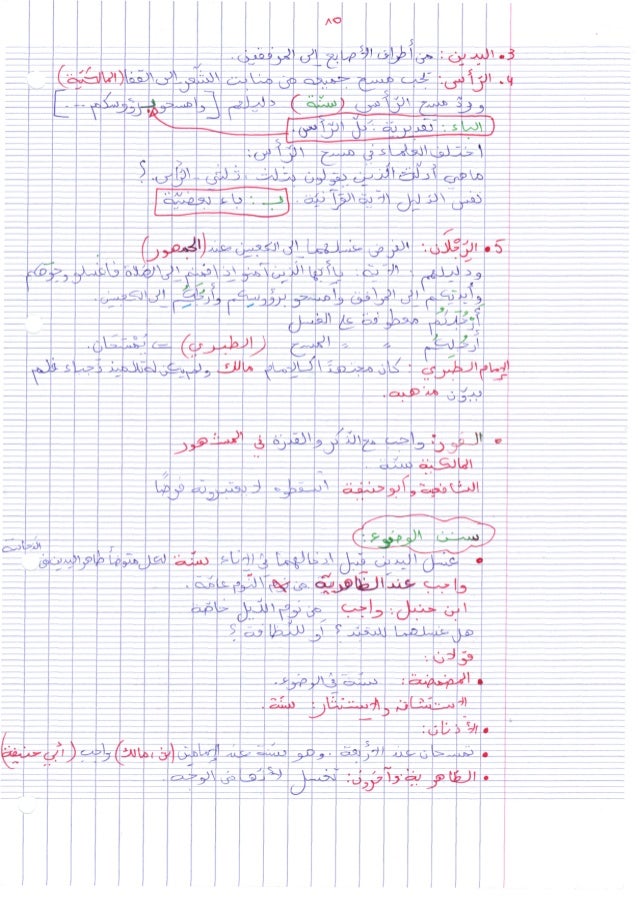 ٨٥
3. اليدين: من أطراف الأصابع إلى المرفقين.
4. الرّأس: تجب مسح جميعه من منابت الشّعر إلى القفا (المالكيّة)
وردّ مسح الرّأس (سنّة) دليلهم [وامسحو برؤوسكم ....]
الباء: تقديرية: كلّ الرّأس.
اختلف العلماء في مسح الرّأس:
ماهي أدلّة الّذين يقولون بثلث، ثلثي الرّأس.؟
نفس الدّليل الآية القرآنيّة. ب: باء بعضيّة
5. الرِّجْلان: الفرض غسلهما إلى الكعبين عند (الجمهور)
ودليلهم: الآية: يا أيها الّذين آمنو إذا قمتم إلى الصّلاة فاغسلو وجوهكم
وأيديكم إلى المرافق وامسحو برؤوسكم وأرجلكم إلى الكعبين.
أرجلَكُم معطوفة على الغسل
أرجلِكم " " المسح (الطّبري) = يُمْسَحَان.
الإمام الطّبري: كان مجتهدًا كالإمام مالك ولم يكن له تلاميذ نجباء فلم
يدوّن مذهبه.
• الفور: واجب مع الذّكر والقدرة في المشهور
المالكية سنّة.
الشافعية وأبو حنيفة أسقطوه لا يعتبرونه فرضًا
سنن الوضوء:
• غسل اليدين قبل ادخالهما في الإناء سنّة لكل متوضأ طاهر اليدين في
واجب عند الظّاهريّة من النّوم عامّة.
ابن حنبل: واجب من نوم اللّيل خاصّة
هل غسلهما للتعبّد؟ أو للنّظافة؟
قولان:
• المضمضة: سنّة في الوضوء.
الاستنشاق والاستنثار: سنّة.
• الأذنان:
• تمسحان عند الأربعة. وهو سنّة عند الإمامين (ش، مالك) واجب (أبي حنيفة)
• الظّاهرية وآخرون: تغسل لأنّها من الوجه.